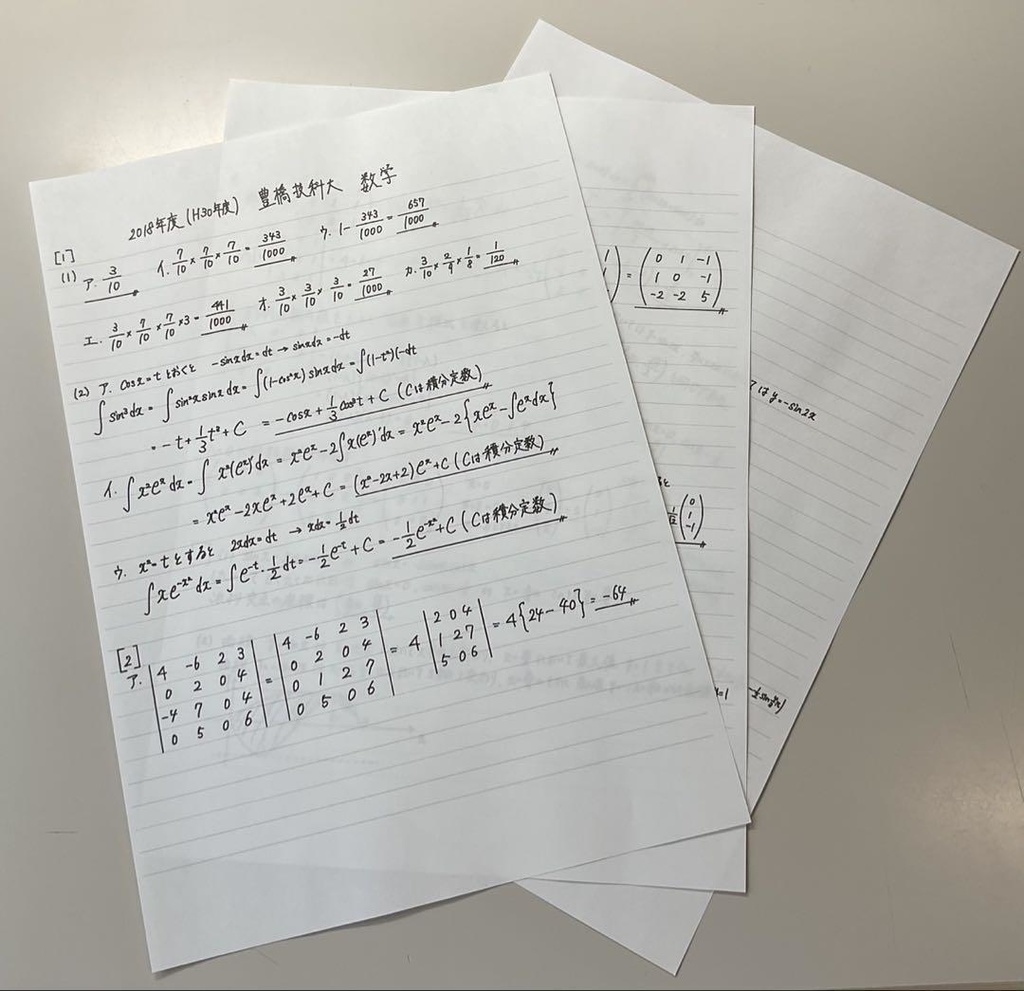 2018年度(H30年度) 豊橋技科大 数学
[1]
(1) ア. 3/10 イ. 7/10 × 7/10 × 7/10 = 343/1000 ウ. 1 - 343/1000 = 657/1000
エ. 3/10 × 7/10 × 7/10 × 3 = 441/1000 オ. 3/10 × 3/10 × 3/10 = 27/1000 カ. 3/10 × 2/9 × 1/8 = 1/120
(2) ア. cosx = t とおくと -sinxdx = dt → sinxdx = -dt
∫sin³dx = ∫sin²x sinx dx = ∫(1-cos²x) sinx dx = ∫(1-t²)(-dt
= -t + 1/3 t³ + C = -cosx + 1/3 cos³t + C (Cは積分定数)
イ. ∫x²eˣ dx = ∫x²(eˣ)'dx = x²eˣ - 2∫x(eˣ)'dx = x²eˣ - 2{xeˣ - ∫eˣdx}
= x²eˣ - 2xeˣ + 2eˣ + C = (x² - 2x + 2)eˣ + C (Cは積分定数)
ウ. x² = t とすると 2xdx = dt → xdx = 1/2 dt
∫xe^{-x²} dx = ∫e^{-t}・1/2 dt = -1/2 e^{-t} + C = -1/2 e^{-x²} + C (Cは積分定数)
[2]
ア. |4 -6 2 3| = |4 -6 2 3| = 4 |2 0 4| = 4{24 - 40} = -64
|0 2 0 4| |0 2 0 4| |1 2 7|
|-4 7 0 4| |0 1 2 7| |5 0 6|
|0 5 0 6| |0 5 0 6|
= (0 1 -1)
(1 0 -1)
(-2 -2 5)
(0)
(1)
(-1)
=1
は y = -sin2x